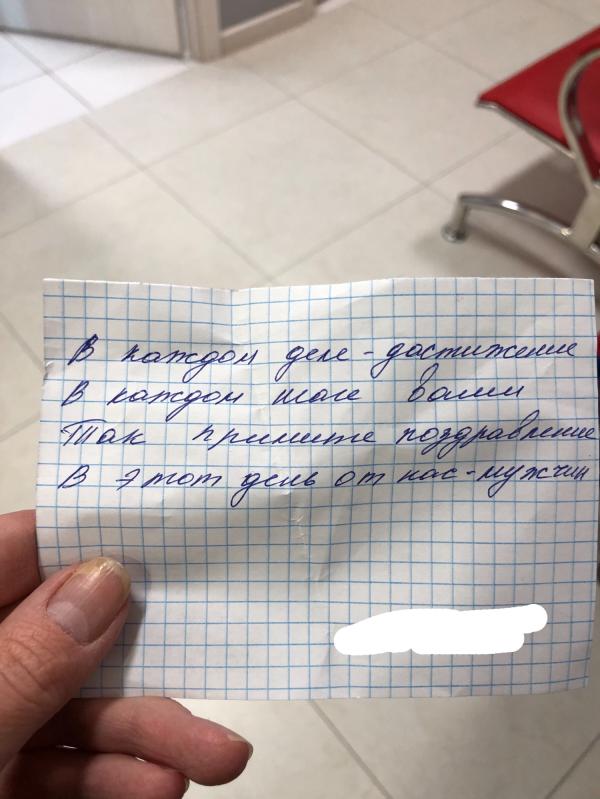 В каждом деле - достижение
В каждом шаге воли
Так примите поздравление
В этот день от нас - мужчин